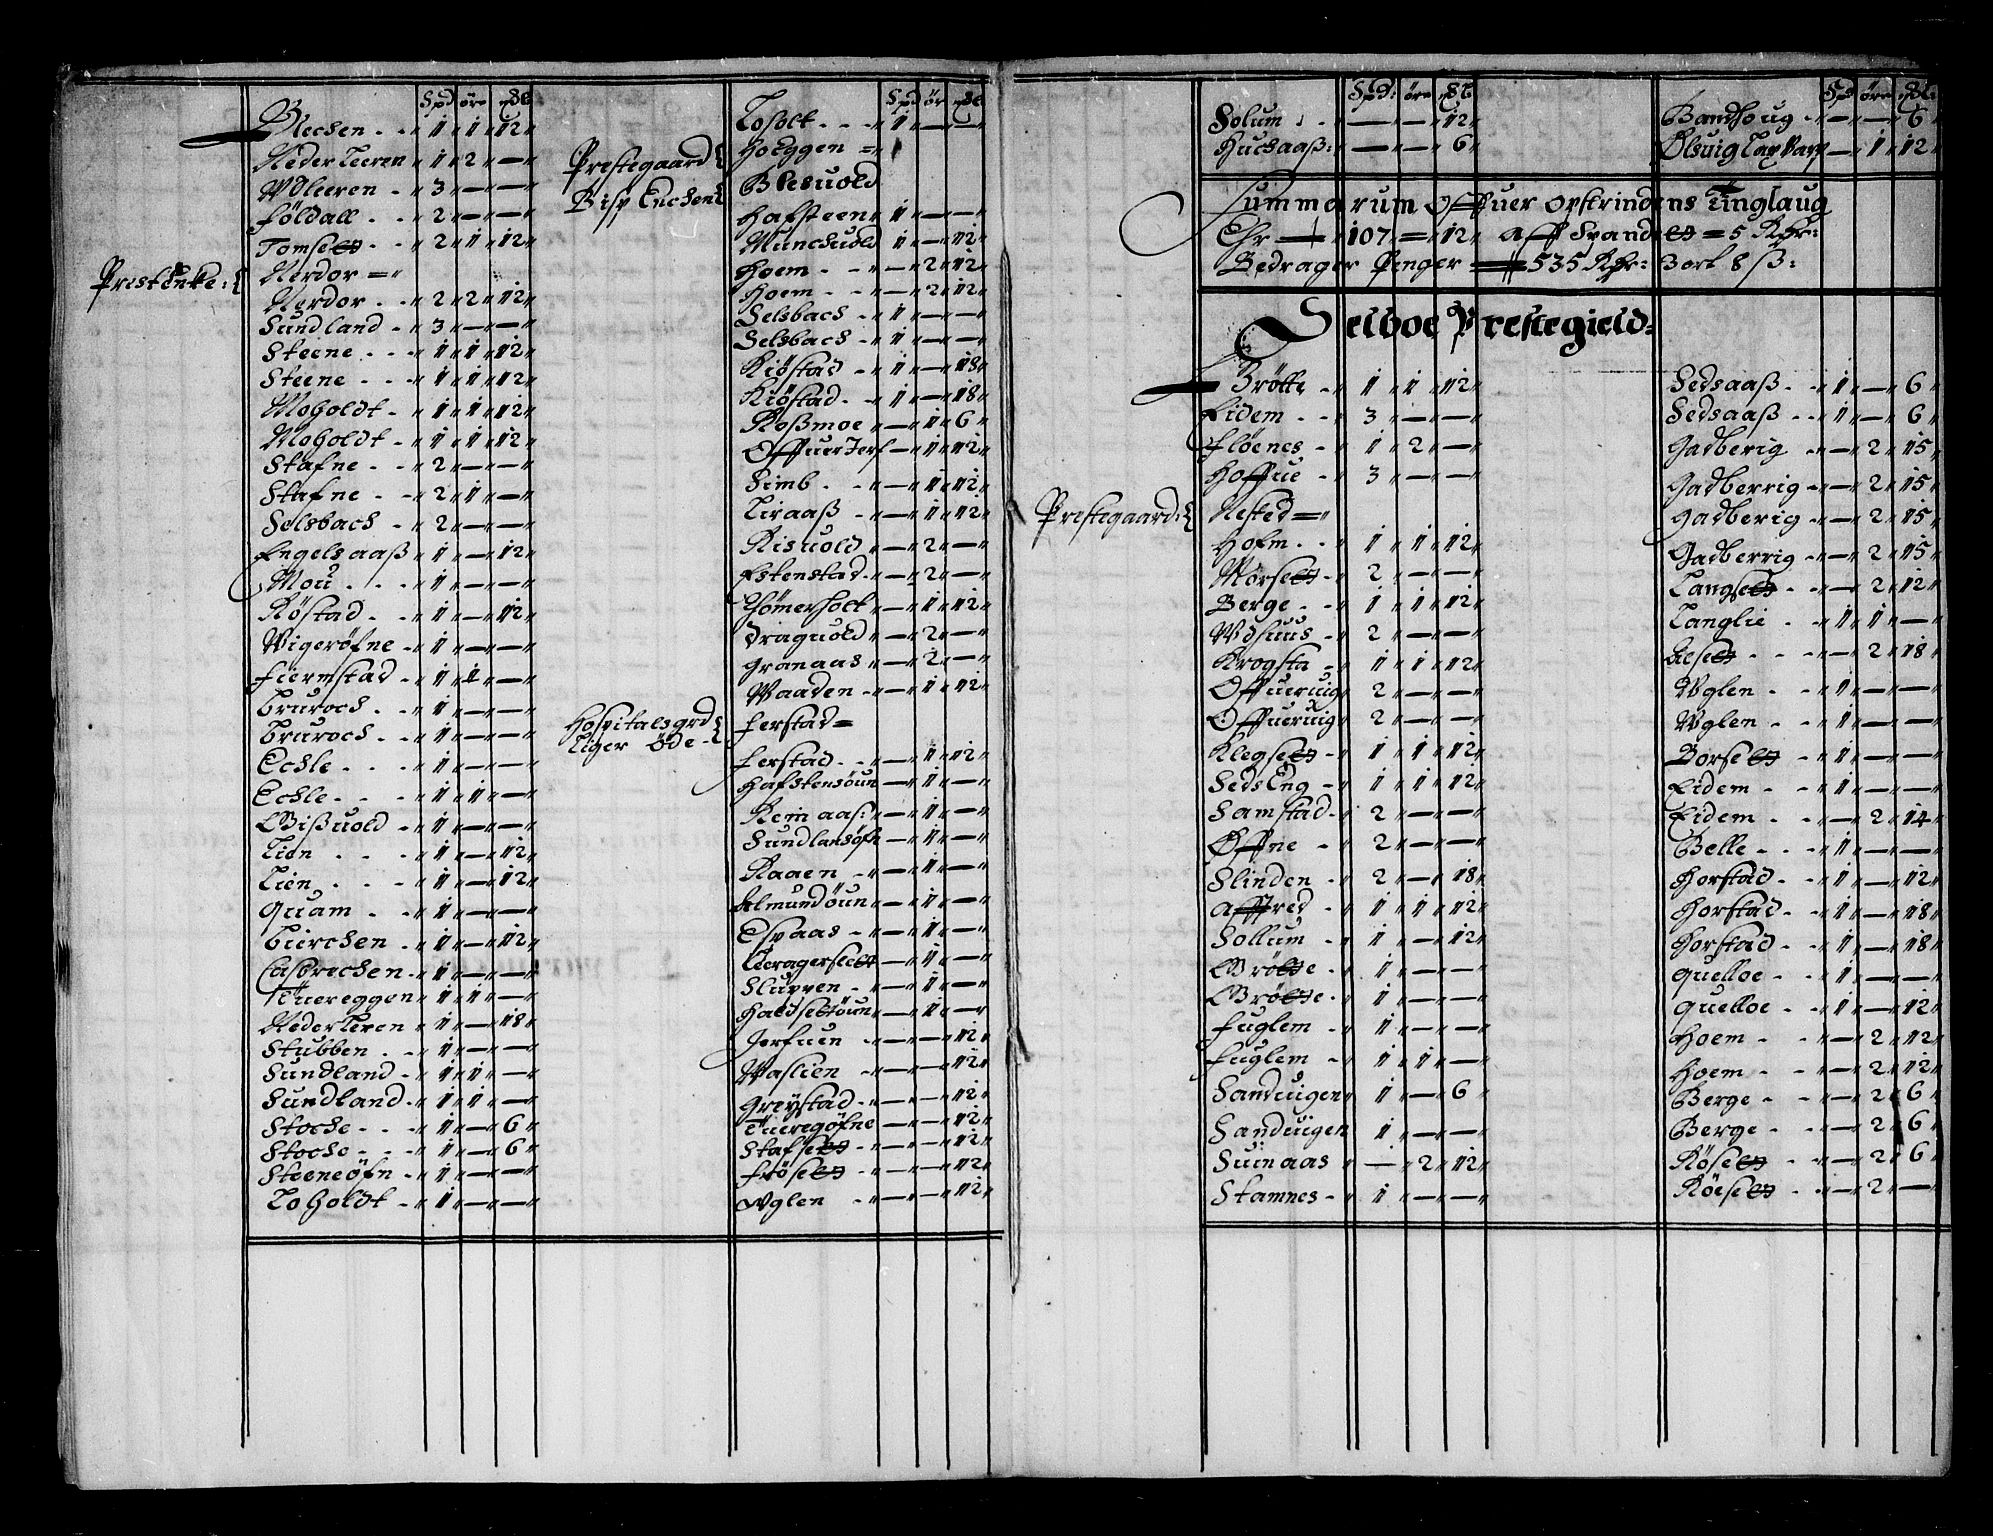 Spd øre
Blechen - - 1 1 12
Neder Leeren 1 2 —
Wdleeren - 3 — —
Foldall - - 2 — —
Tomsett - - 2 1 12
PrestEnke: { Nerdor =
Nerdor - - 2 2 12
Sundland - 3 — —
Steine - - - 1 1 12
Steene - - - 1 1 12
Moholdt - 1 1 12
Moholdt - 1 1 12
Stafne - - 2 — —
Stafne - - 2 1 —
Selsbach - 2 — —
Engelsaaß - 1 — 12
Moü - - - 1 — —
Røstad - - 1 — 12
Wigerøfne - 1 — —
Fiermstad - 1 1 —
Bruroch - - 1 — —
Bruroch - - 1 — —
Echle - - - 1 — —
Echle - - - 1 1 —
Gißuold - 1 — —
Lien - - - 1 — 12
Lien - - - 1 — 12
Quam - - 1 — —
Bierchen - - 1 — 12
Casbrechen - 1 — —
Tüereggen 1 1 —
Neder Leren 1 — 18
Stubben - - 1 — —
Sundland - 1 1 —
Sundland - 1 1 —
Stoche - - - 1 — 6
Stoche - - - 1 — 6
Steeneøfn - 1 — —
Loholdt - - 1 — —
Spd ør
Loholt - - - 1 — —
Prestegaard { Hoeggen =
Bisp Enchen { Blesuold
Hafsteen 1 — —
Munchuold 1 — 12
Hoem - - — 2 12
Hoem - - — 2 12
Selsbach - 1 — —
Selsbach - 1 — —
Kiøstad - 1 — 18
Kiøstad - 1 — 18
Roßmoe — 1 6
Offuer Jerf — 1 12
Simb - - — 1 12
Liraaß - — 1 12
Risuold — 2 —
Estenstad - — 2 —
Thømerholt — 1 12
Draguold — 2 —
Granaas — 2 —
Waaden — 1 12
Hospitalsgrd { Ferstad =
Liger Øde - {
Ferstad - - — 1 12
Hafstensöun — 1 —
Reinaas: — 1 —
Sundlansøfn — 1 —
Raaen - — 1 —
Almundöun — 1 —
Espaas - — 1 —
— 1 —
Sluppen - — 1 —
Haldsetöun — 1 —
Jerfuen - — — 12
Waslien - — — 12
Greystad - — — 12
Tüeregøfne — — 12
Stafsett - — — 12
Frøsett - — — 12
Wglen - - — — 12
Spd: øre
Solum : - — — 12
Huchaaß: — — 6
Spd øre
Bandhoug - — — 6
— 1 12
Summarum Offuer Opstrindens Tinglaug
Ehr — 107 = 12 aff Spand = 5 Rdr:
Bedrager Penger — 535 Rdr: 3 ort 8 ß:
Selboe Prestegield:
Brøtte - 1 1 12
Eidem - - 3 — —
Fløenes - 1 2 —
Hoffue - 3 — —
Prestegaard: { Nested =
Hofm - - 1 1 12
Morsett - 2 — —
Berge - - 1 1 12
Wdhuus - 2 — —
Krogsta - 1 1 12
Offueruig 2 — —
Offueruig 2 — —
Klegsett - 1 1 12
SedsEng - 1 1 12
Samstad - 2 — —
Offne - 2 — —
Slinden - 2 — 18
Afftred - 1 1 12
Sollum - 1 — 12
Grøtte - 1 — —
Grøtte - 1 — —
Fuglem - 1 — —
Fuglem - 1 1 —
Sanduigen 1 — 6
Sanduigen 1 — —
Suinaas — 2 12
Stamnes - 1 — —
Sedsaaß - 1 — 6
Sedsaaß - 1 — 6
Gadberig - — 2 15
Gadberrig - — 2 15
Gadberig - — 2 15
Gadberrig - — 2 15
Langsett - — 2 12
Langlie - 1 1 —
Alsett - - — 2 18
Wglen - - 1 — —
Wglen - - 1 — —
Borsett - 1 — —
Eidem - - 1 — —
Eidem - - — 2 14
Belle - - 1 — —
Horstad - 1 — 12
Horstad - 1 — 18
Horstad - 1 — 18
Quelloe - 1 — —
Quelloe - 1 — 12
Hoem - - — 2 12
Hoem - - — 2 12
Berge - - — 2 6
Berge - - — 2 6
Røsett - — 2 6
Røesett - — 2 —